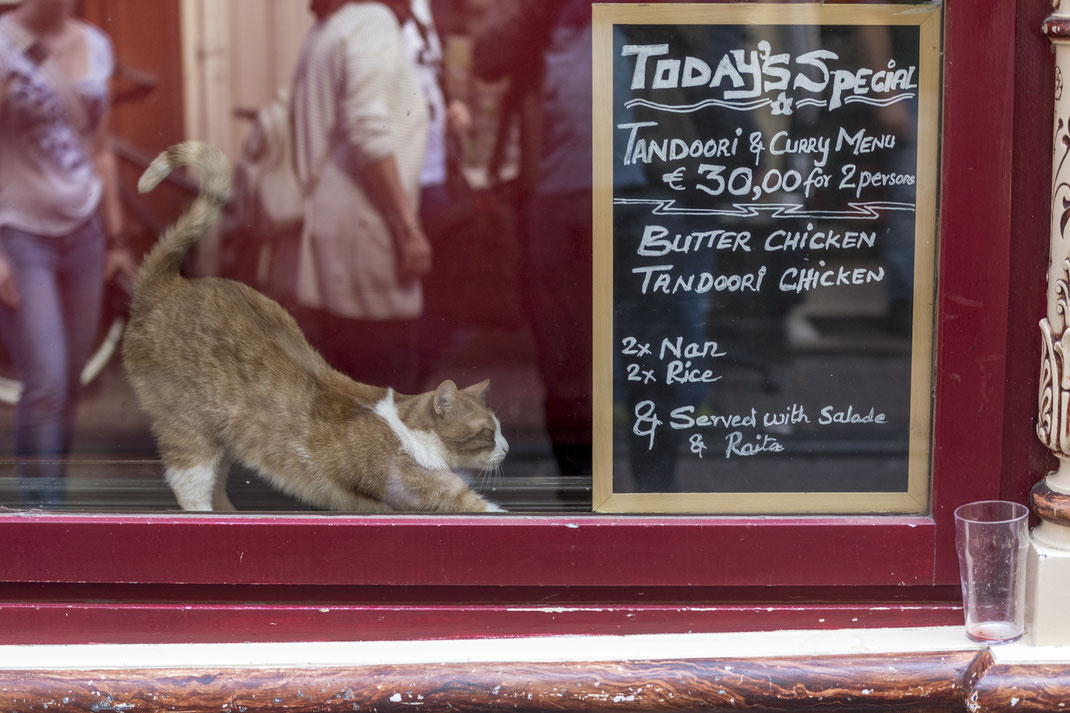 TODAY'S SPECIAL
TANDOORI & CURRY MENU
€ 30,00 for 2 persons
BUTTER CHICKEN
TANDOORI CHICKEN
2x Nan
2x Rice
& Served with Salade
& Raita